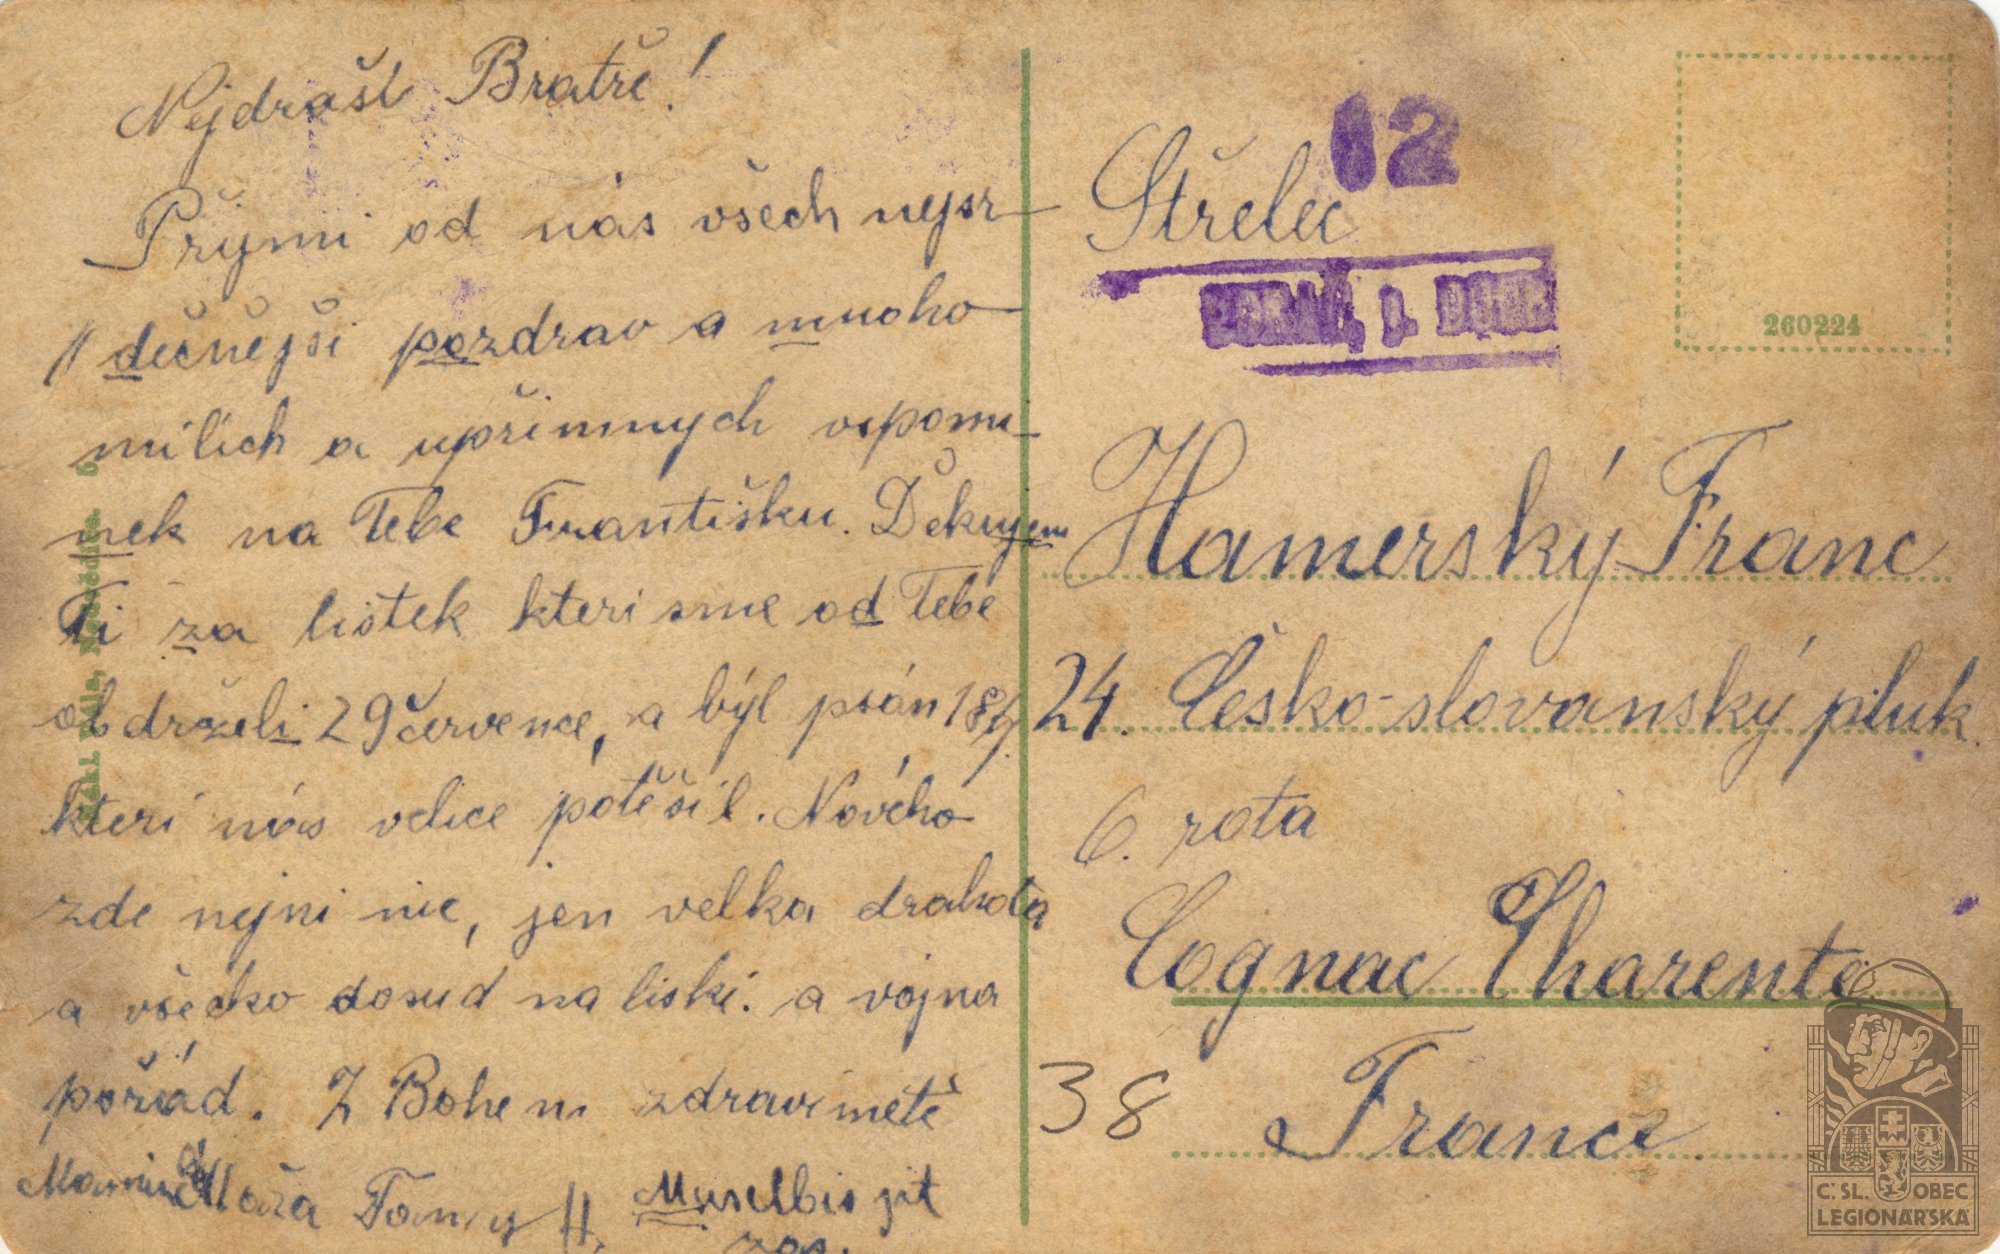 Nejdrašč Bratře!
Přijmi od nás všech nejsr-
dečnejši pozdrav a mnoho
milich a upřimnych vspomi-
nek na Tebe Františku. Děkujem
Ti za listek kteri sme od Tebe
obdrželi 29 července, a býl psán 18/7.
kteri nás velice potěšil. Nového
zde nejni nic, jen velka drahota
a všecko dosud na liski. a vojna
pořád. Z Bohem zdravíme tě
Maminka Máňa Tonny Musel bis jit
zas.
12
Střelec
260224
Hamerský Franc
24. Česko-slovanský pluk.
6. rota
Cognac Charente
38 France
C.SL. OBEC
LEGIONÁŘSKÁ